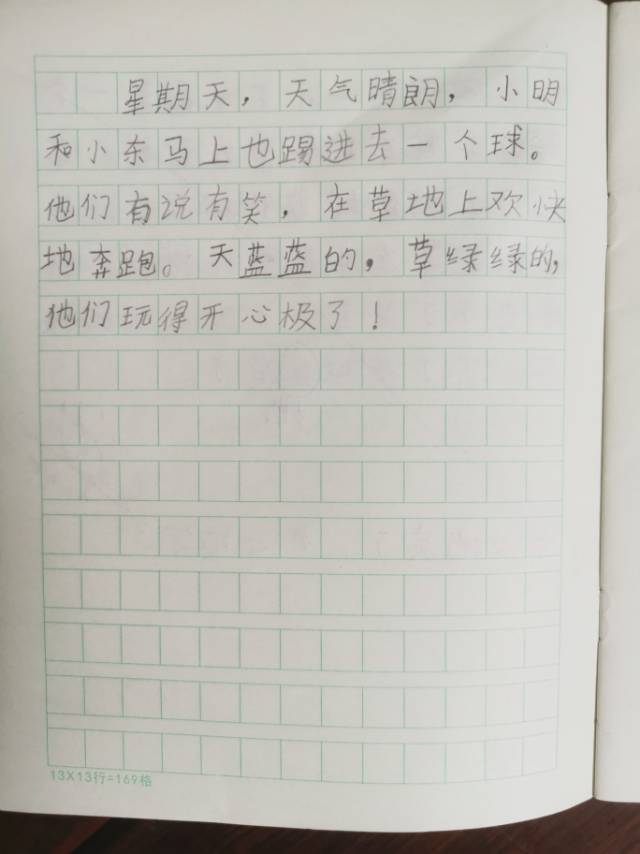 星期天，天气晴朗，小明
和小东马上也踢进去一个球。
他们有说有笑，在草地上欢快
地奔跑。天蓝蓝的，草绿绿的，
他们玩得开心极了！
13X13行=169格